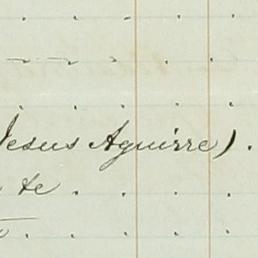 Jesus Aguirre).
te